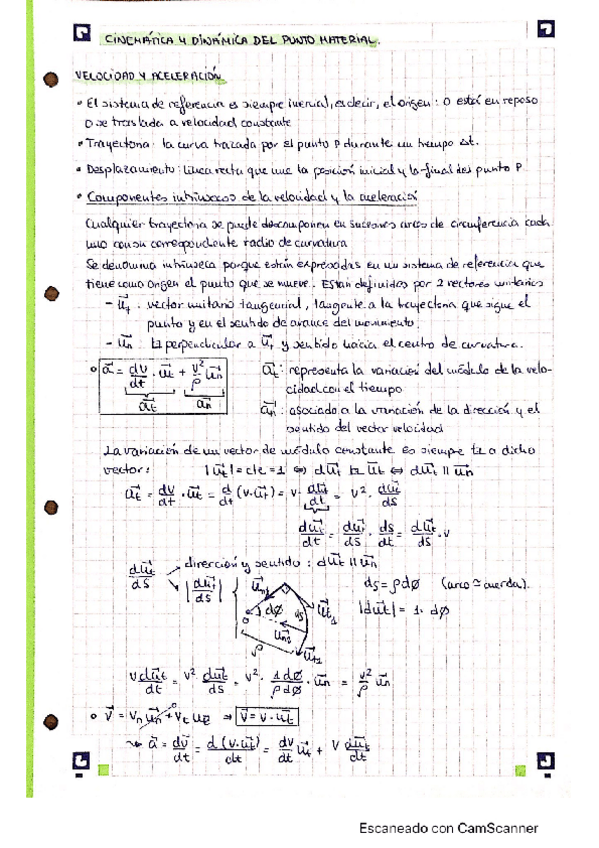 CINEMÁTICA Y DINÁMICA DEL PUNTO MATERIAL.
VELOCIDAD Y ACELERACIÓN
• El sistema de referencia es siempre inercial, es decir, el origen: O está en reposo
o se traslada a velocidad constante
• Trayectoria: la curva trazada por el punto P durante un tiempo Δt.
• Desplazamiento: línea recta que une la posición inicial y la final del punto P
• Componentes intrínsecas de la velocidad y la aceleración
Cualquier trayectoria se puede descomponer en sucesivos arcos de circunferencia cada
uno con su correspondiente radio de curvatura
Se denomina intrínseca porque están expresadas en un sistema de referencia que
tiene como origen el punto que se mueve. Están definidos por 2 vectores unitarios
- u⃗t : vector unitario tangencial, tangente a la trayectoria que sigue el
punto y en el sentido de avance del movimiento.
- u⃗n : perpendicular a u⃗t y sentido hacia el centro de curvatura.
a⃗ = dv/dt · u⃗t + v²/ρ u⃗n
a⃗t a⃗n
a⃗t : representa la variación del módulo de la velo-
cidad con el tiempo
a⃗n : asociado a la variación de la dirección y el
sentido del vector velocidad
La variación de un vector de módulo constante es siempre ⊥ a dicho
vector: |u⃗t| = cte = 1 ⇔ du⃗t ⊥ u⃗t ⇔ du⃗t || u⃗n
= d/dt (v·u⃗t) = v · du⃗t/dt = v² · du⃗t/ds
du⃗t/dt = du⃗t/ds · ds/dt = du⃗t/ds · v
du⃗t/ds
dirección y sentido : du⃗t || u⃗n
|du⃗t/ds|
u⃗n1 dφ ds u⃗t1 u⃗n2 ρ u⃗t2
ds = ρdφ (arco ≃ cuerda).
|du⃗t| = 1 · dφ
v du⃗t/dt = v² du⃗t/ds = v² · 1dφ/ρdφ · u⃗n = v²/ρ u⃗n
v⃗ = vn u⃗n + vt ⇒ v⃗ = v · u⃗t
a⃗ = dv⃗/dt = d(v·u⃗t)/dt = dv/dt u⃗t + v du⃗t/dt
Escaneado con CamScanner